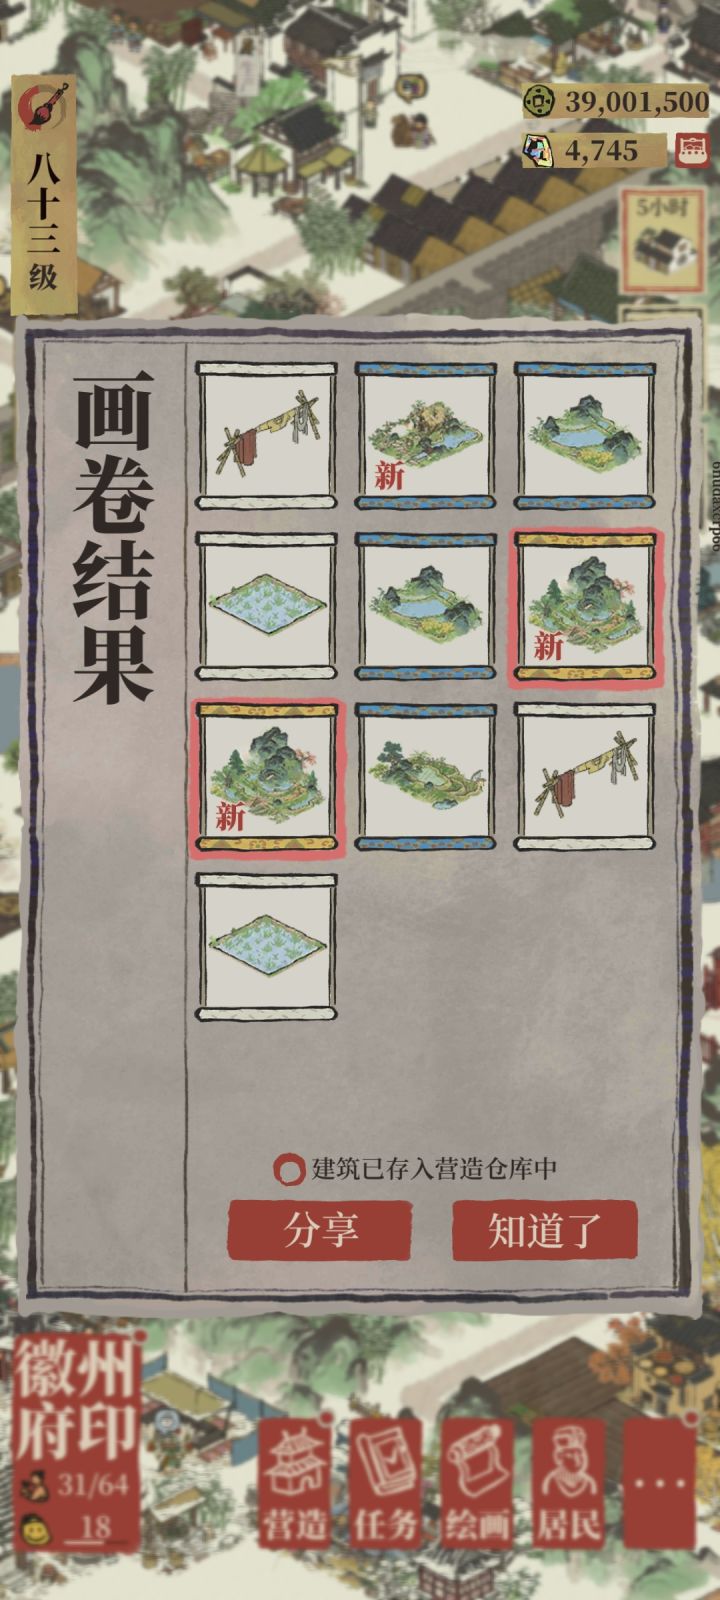 八十三级
39,001,500
4,745
5小时
画卷结果
新
新
新
建筑已存入营造仓库中
分享
知道了
徽州
府印
31/64
18
营造
任务
绘画
居民